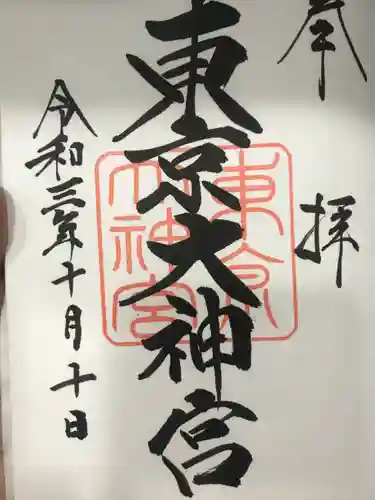 奉拝
東京大神宮
東京大神宮
令和三年十月十日